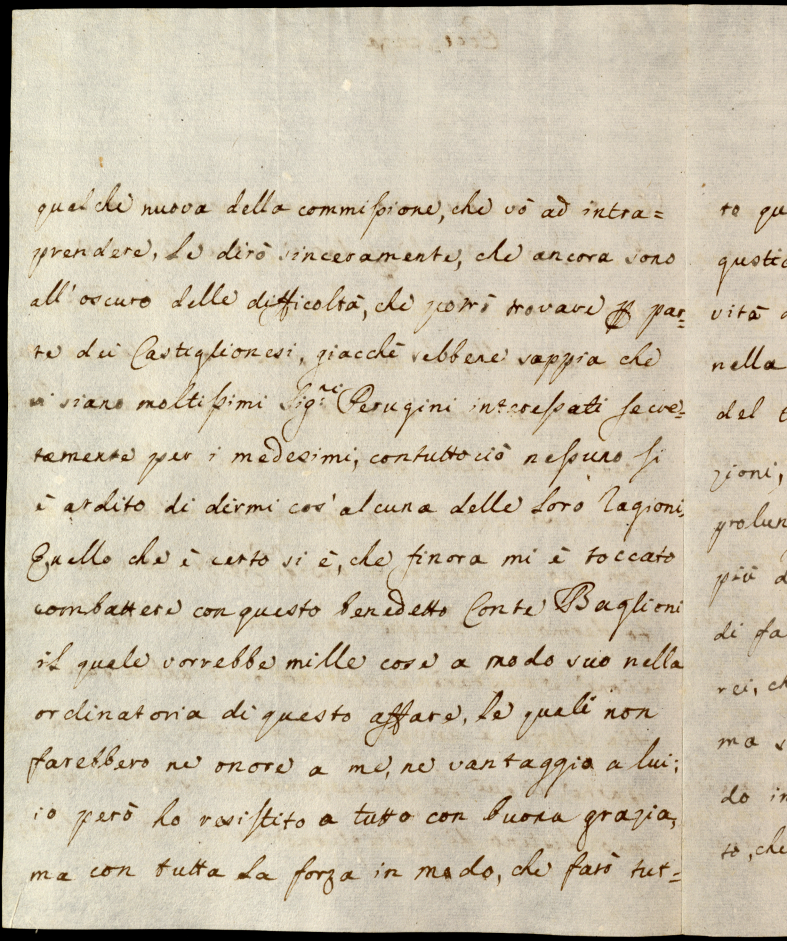 qualche nuova della commissione, che vò ad intra=
prendere. Le dirò sinceramente, che ancora sono
all'oscuro delle difficoltà, che potrò trovare par=
te dei Castiglionesi, giacchè sebbene sappia che
vi siano moltissimi Sig:ri Perugini interessati secre=
tamente per i medesimi, contuttociò nessuno si
è ardito di dirmi cos'alcuna delle loro ragioni.
Quello che è certo si è, che finora mi è toccato
combattere con questo benedetto Conte Baglioni
il quale vorrebbe mille cose a modo suo nella
ordinatoria di questo affare, le quali non
farebbero ne onore a me, ne vantaggio a lui;
io però ho resistito a tutto con buona grazia,
ma con tutta la forza in modo, che farò tut=
vità
nella
del
zioni,
più
di fa
ma
do in
to, che